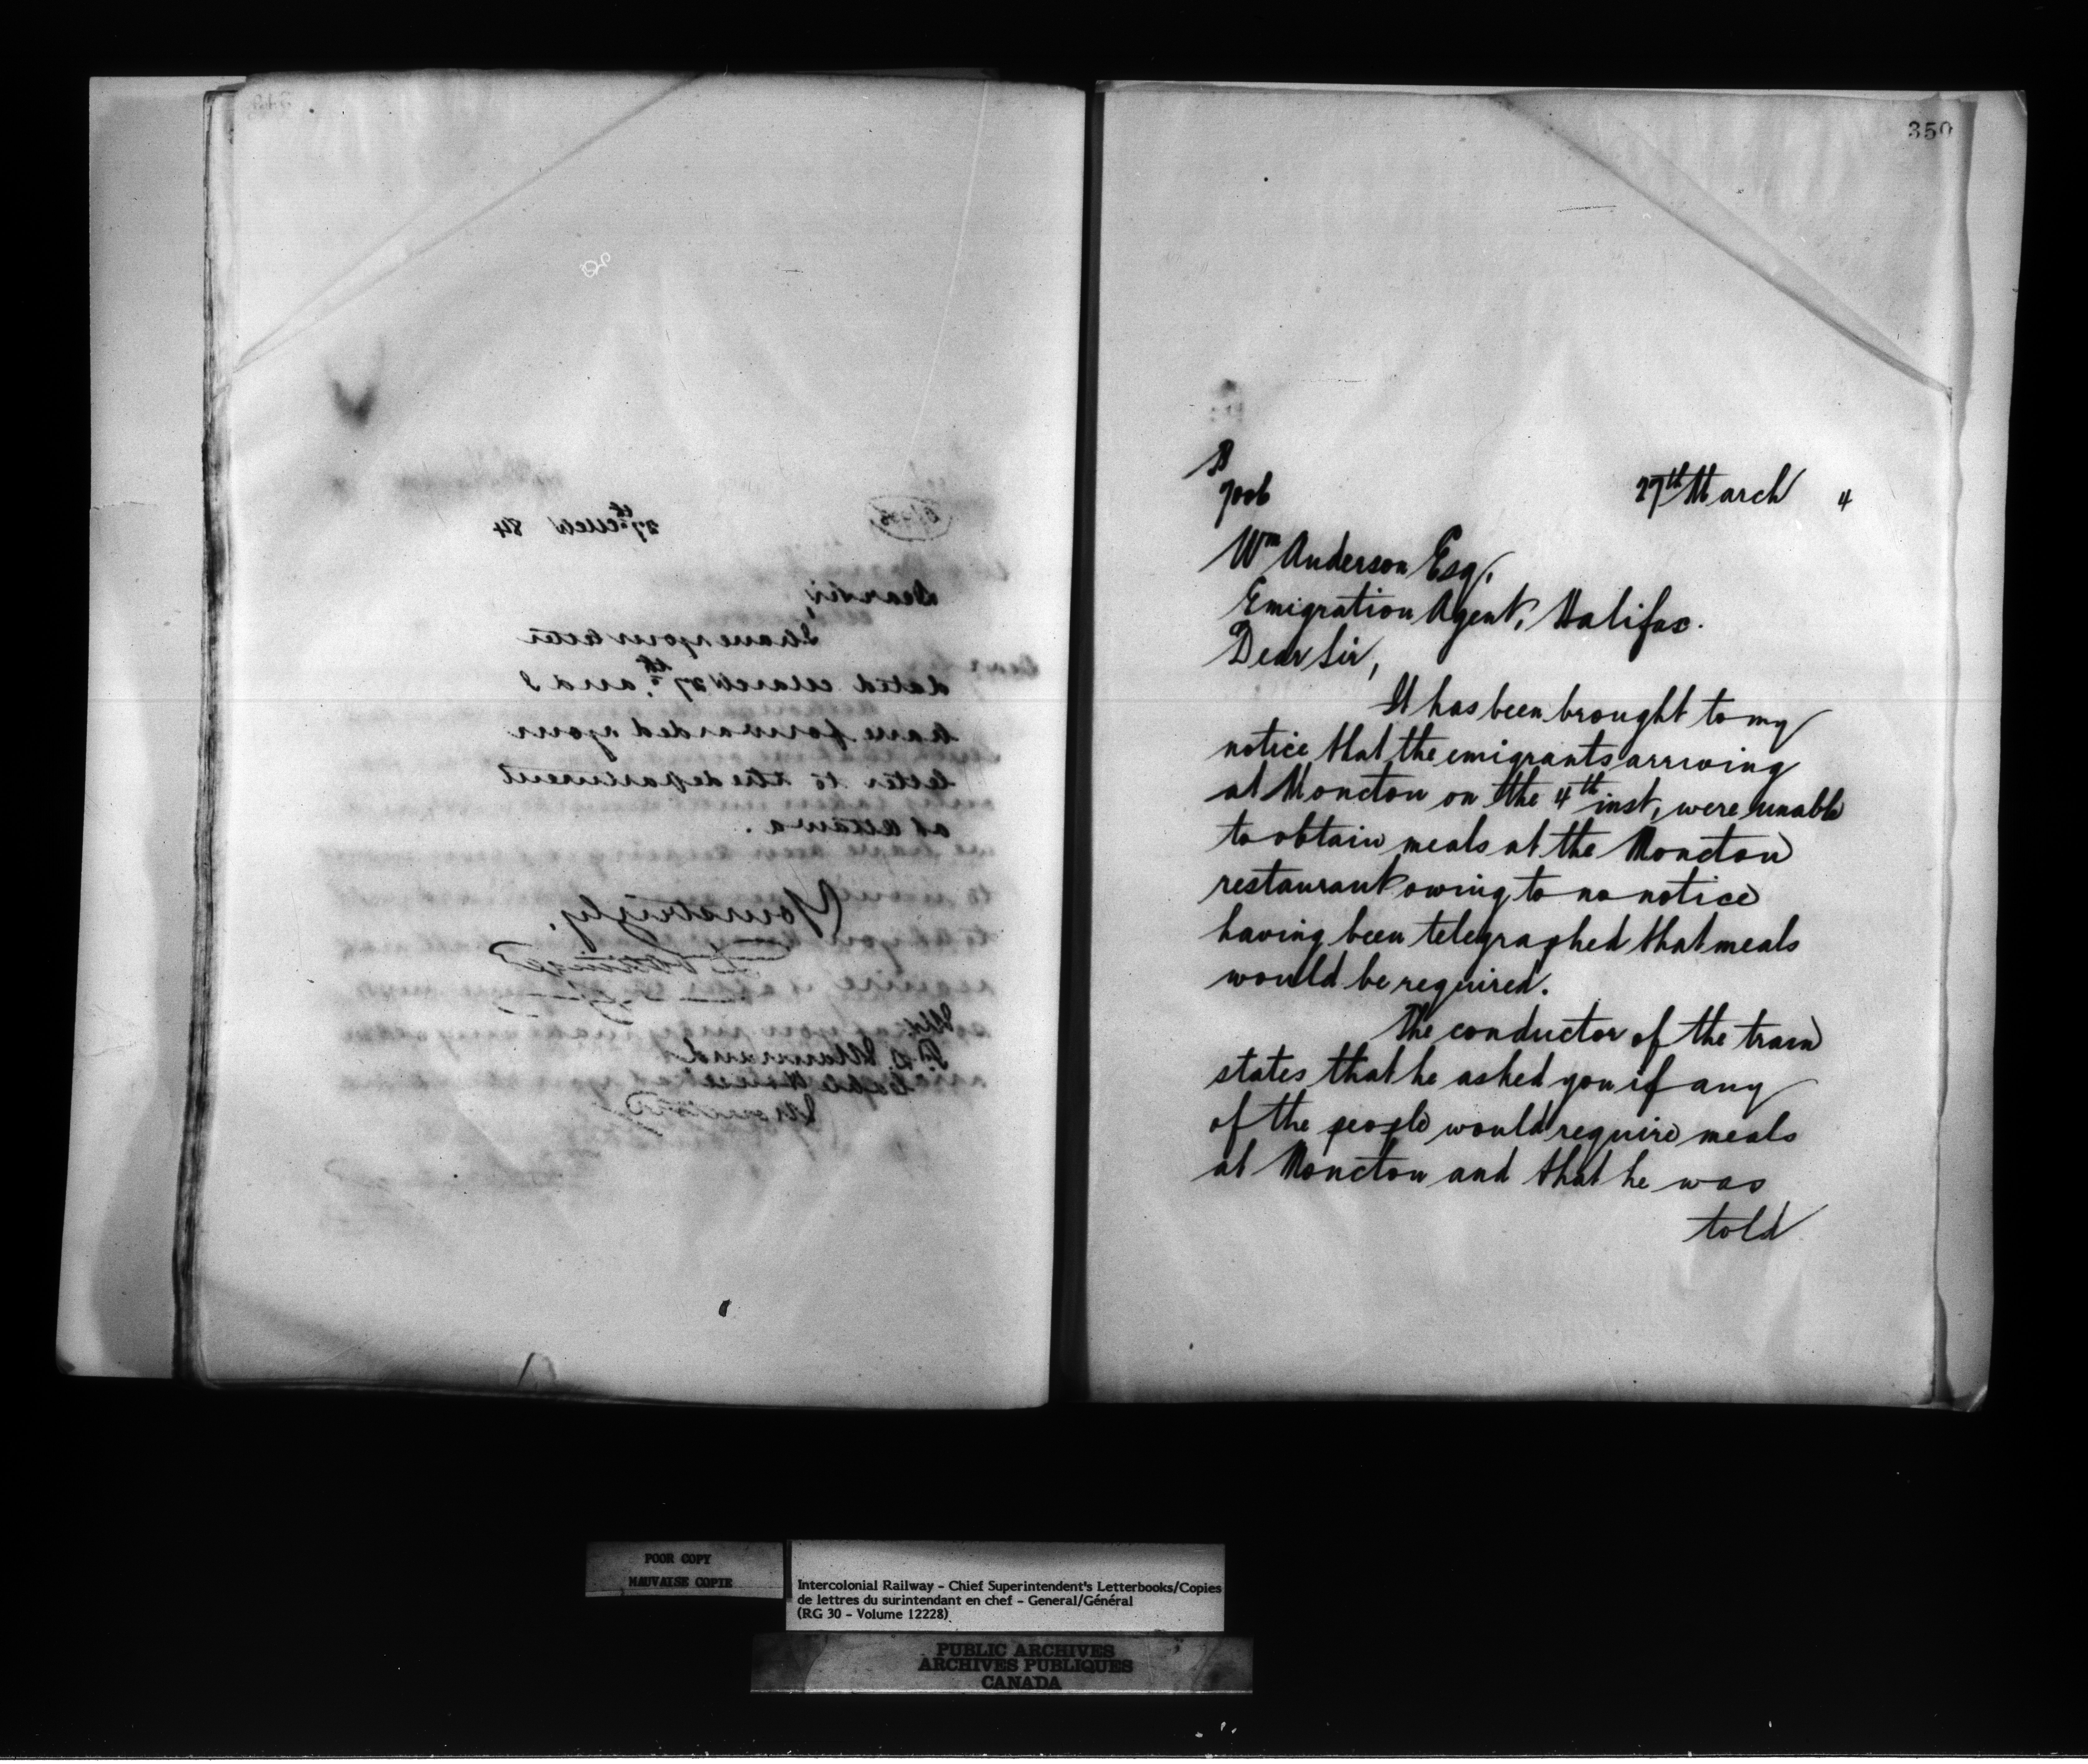 27th March 84
Dear Sir,
I have your letter
dated March 27th, and I
have forwarded your
letter to the department
at Ottawa.
Yours truly,
350
B
7006
27th March 4
Wm Anderson Esq.
Emigration Agent, Halifax.
Dear Sir,
It has been brought to my
notice that the emigrants arriving
at Moncton on the 4th inst, were unable
to obtain meals at the Moncton
restaurant owing to no notice
having been telegraphed that meals
would be required.
The conductor of the train
states that he asked you if any
of the people would require meals
at Moncton and that he was
told
POOR COPY
MAUVAISE COPIE
Intercolonial Railway - Chief Superintendent's Letterbooks/Copies
de lettres du surintendant en chef - General/Général
(RG 30 - Volume 12228)
PUBLIC ARCHIVES
ARCHIVES PUBLIQUES
CANADA